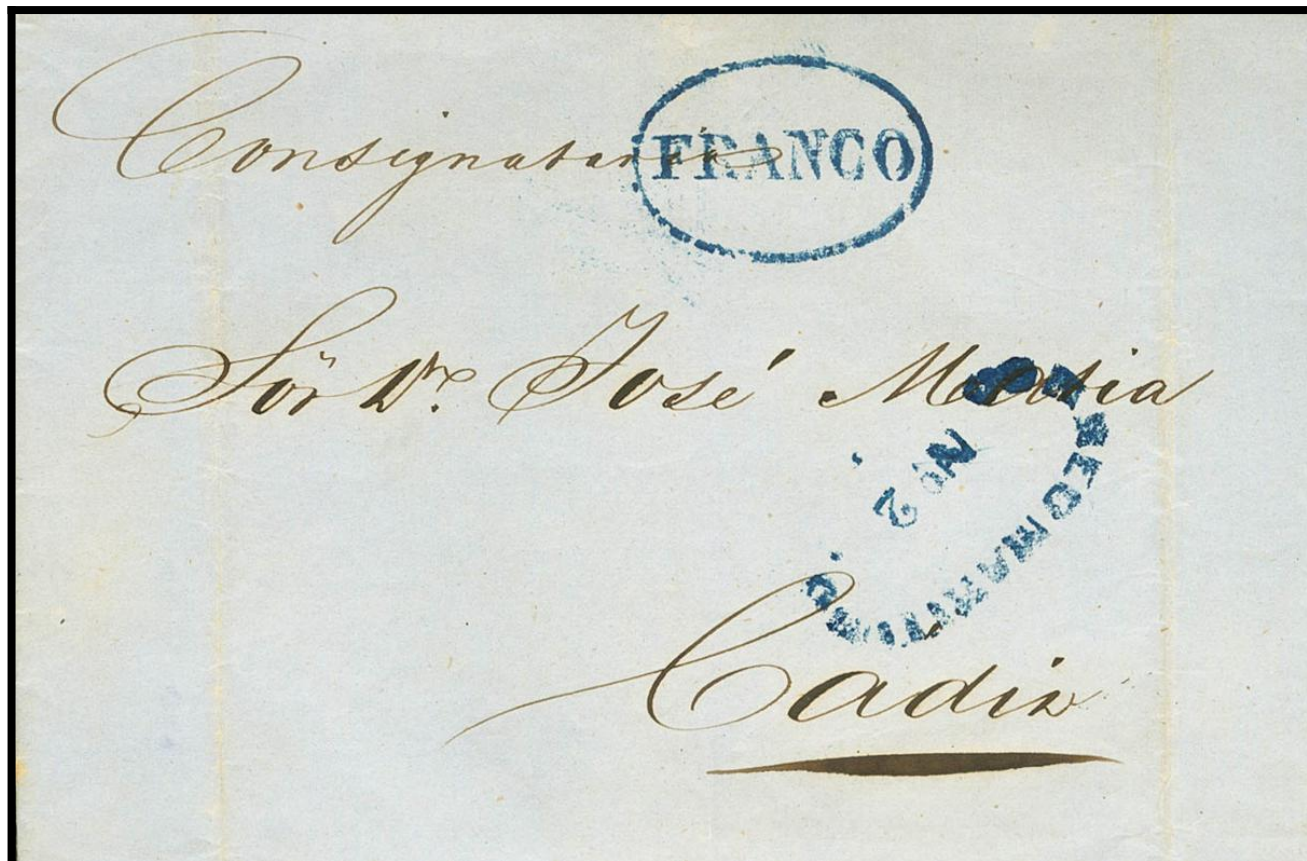 Consignatario
FRANCO
Sör Dn. José Maria
No 2
Cadiz